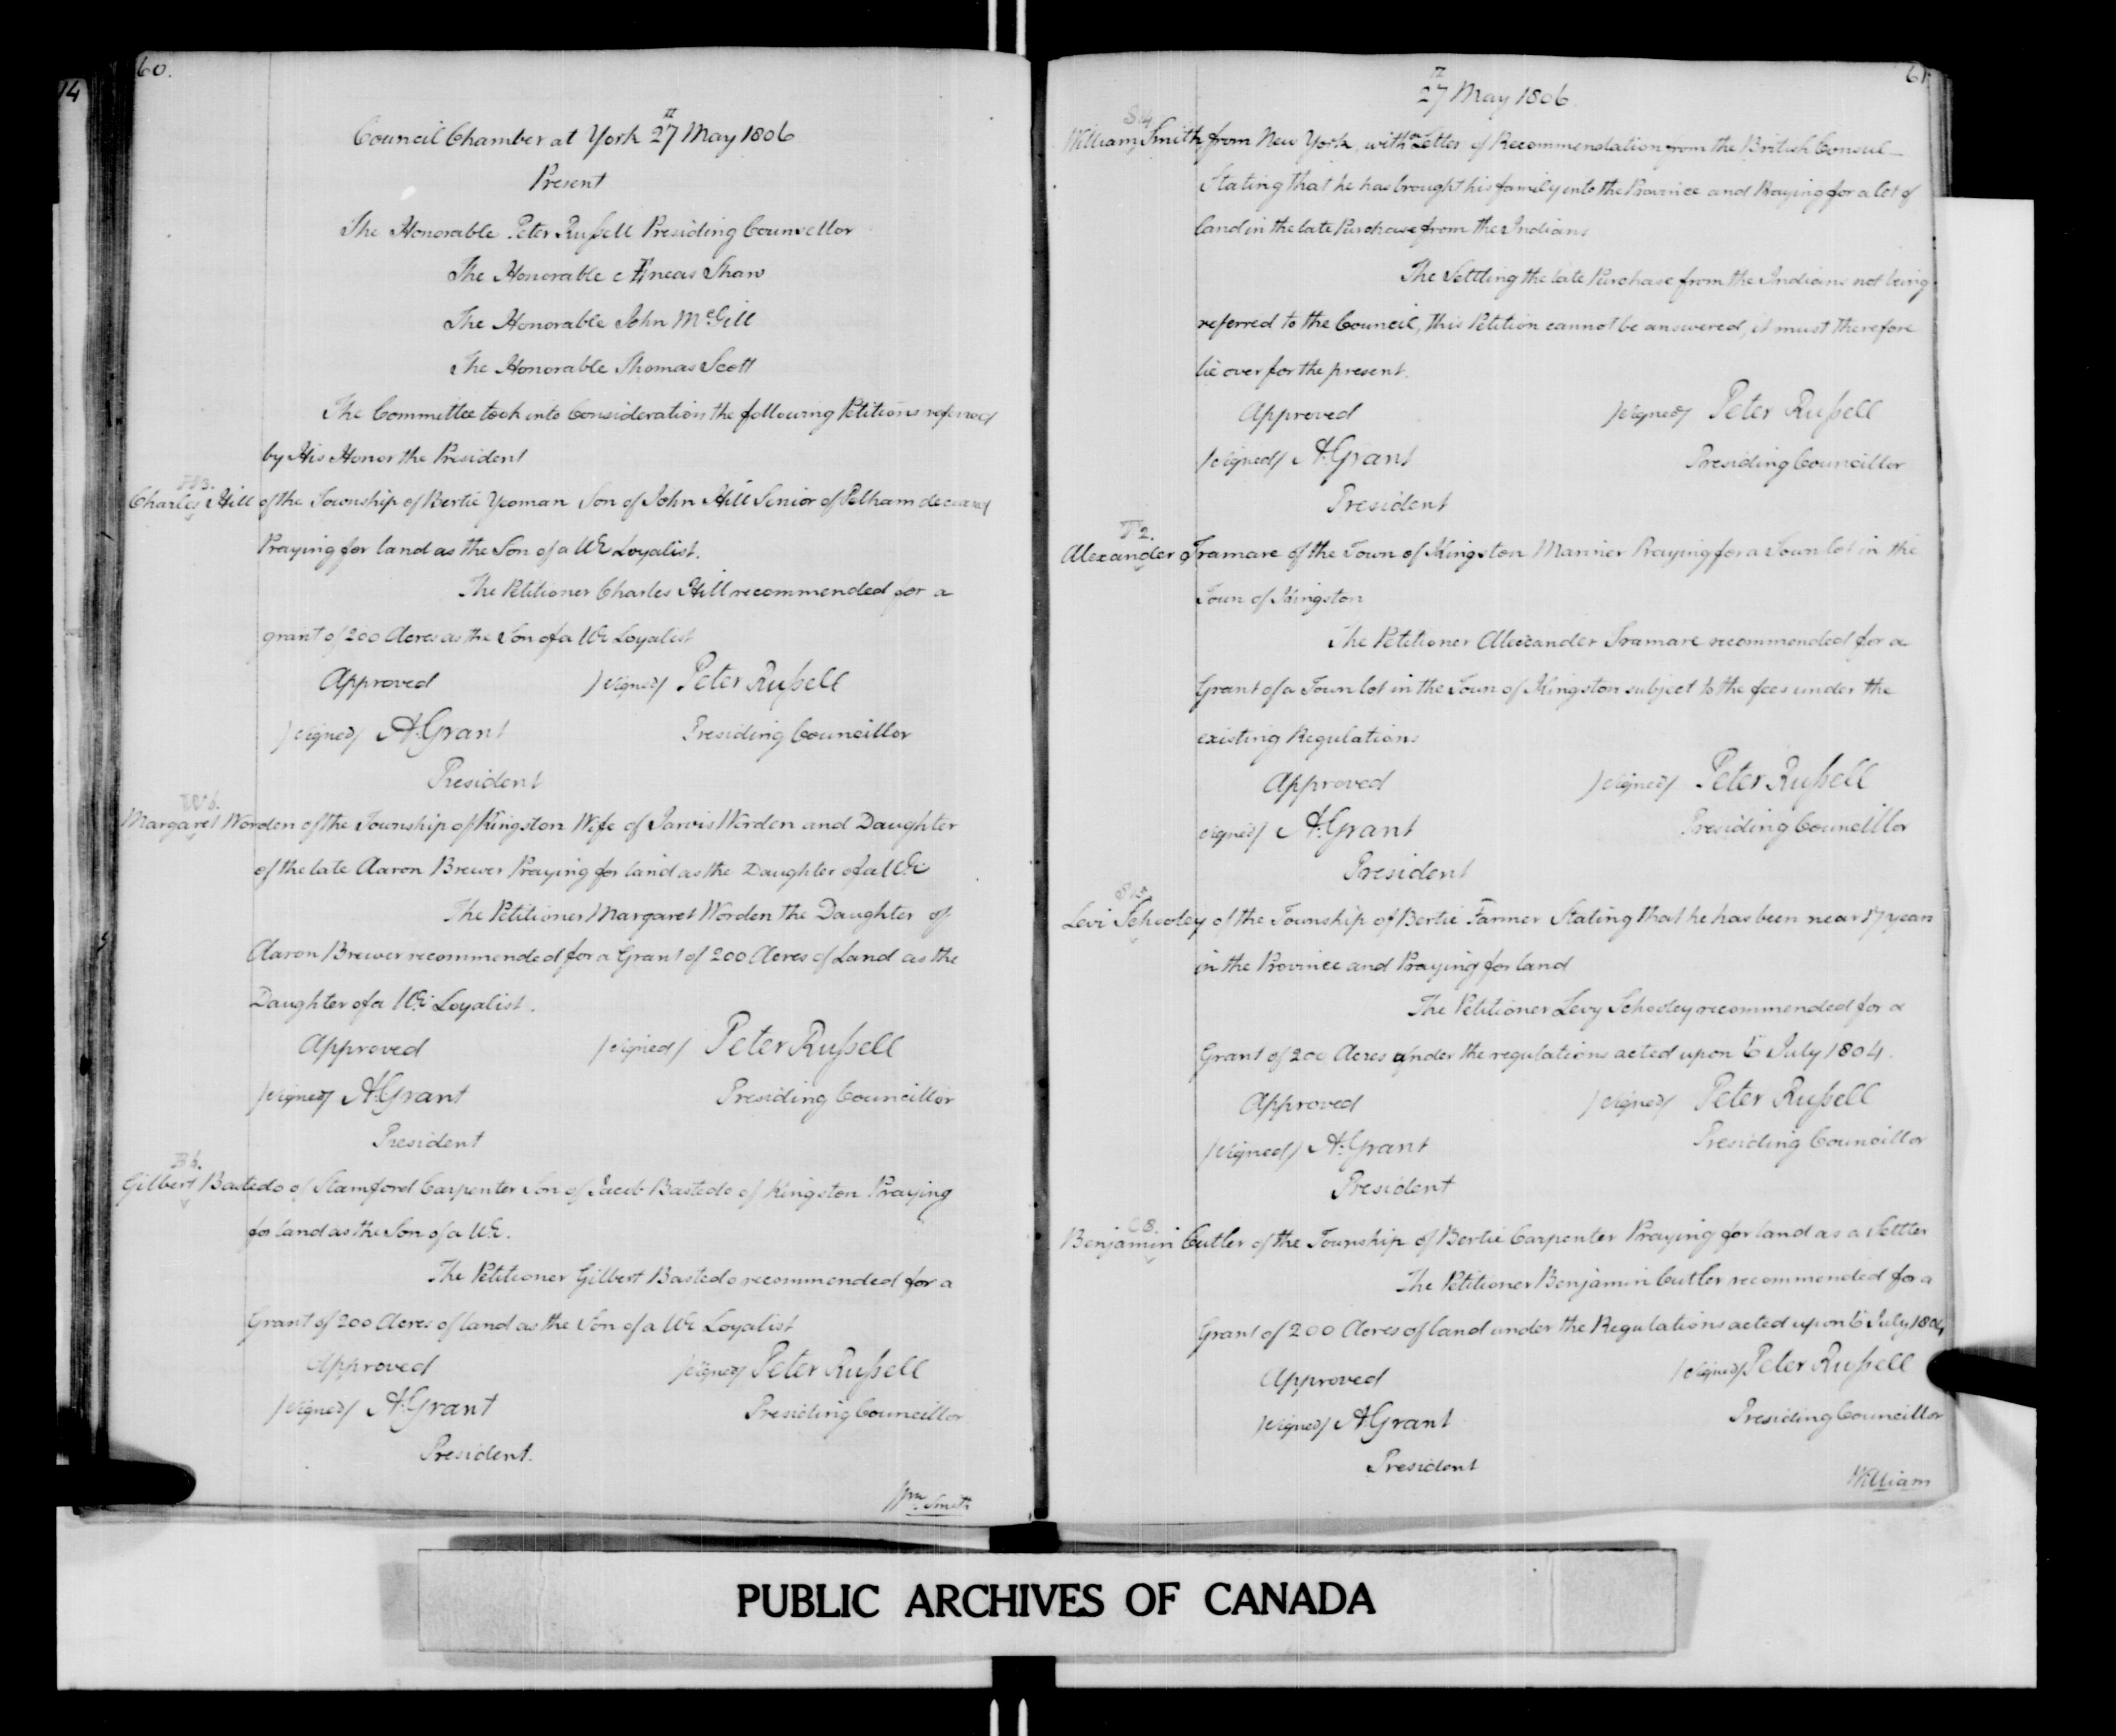 14
60.
Council Chamber at York 27th May 1806
Present
The Honorable Peter Russell Presiding Councellor
The Honorable Æneas Shaw
The Honorable John McGill
The Honorable Thomas Scott
The Committee took into Consideration the following Petitions referred
by His Honor the President
H3.
Charles Hill of the Township of Bertie Yeoman Son of John Hill Senior of Pelham deceased
Praying for land as the Son of a UE Loyalist.
The Petitioner Charles Hill recommended for a
grant of 200 Acres as the Son of a UE Loyalist
Approved /signed/ Peter Russell
/signed/ A. Grant Presiding Councillor
President
W6.
Margaret Worden of the Township of Kingston Wife of Jarvis Worden and Daughter
of the late Aaron Brewer Praying for land as the Daughter of a UE
The Petitioner Margaret Worden the Daughter of
Aaron Brewer recommended for a Grant of 200 Acres of Land as the
Daughter of a UE Loyalist.
Approved /signed/ Peter Russell
/signed/ A. Grant Presiding Councillor
President
B6.
Gilbert Bastedo of Stamford Carpenter Son of Jacob Bastedo of Kingston Praying
for land as the Son of a UE.
The Petitioner Gilbert Bastedo recommended for a
Grant of 200 Acres of land as the Son of a UE Loyalist
Approved /signed/ Peter Russell
/signed/ A. Grant Presiding Councillor
President.
Wm. Smith
61
27th May 1806
William Smith from New York, with a Letter of Recommendation from the British Consul
Stating that he has brought his family into the Province and Praying for a lot of
land in the late Purchase from the Indians
The Settling the late Purchase from the Indians not being
referred to the Council, this Petition cannot be answered, it must therefore
lie over for the present.
Approved /signed/ Peter Russell
/signed/ A. Grant Presiding Councillor
President
T2.
Alexander Tramare of the Town of Kingston Mariner Praying for a Town lot in the
Town of Kingston
The Petitioner Alexander Tramare recommended for a
Grant of a Town lot in the Town of Kingston subject to the fees under the
existing Regulations
Approved /signed/ Peter Russell
signed/ A. Grant Presiding Councillor
President
Levi Schooley of the Township of Bertie Farmer Stating that he has been near 17 years
in the Province and Praying for land
The Petitioner Levy Schooley recommended for a
Grant of 200 Acres under the regulations acted upon 6th July 1804.
Approved /signed/ Peter Russell
/signed/ A. Grant Presiding Councillor
President
C8.
Benjamin Cutler of the Township of Bertie Carpenter Praying for land as a Settler
The Petitioner Benjamin Cutler recommended for a
Grant of 200 Acres of land under the Regulations acted upon 6 July 1804
Approved /signed/ Peter Russell
/signed/ A. Grant Presiding Councillor
President
William
PUBLIC ARCHIVES OF CANADA